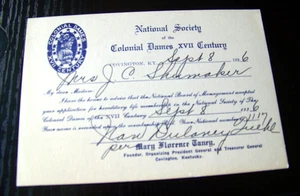 COLONIAL DAMES
XVII CENTURY
National Society
of the
Colonial Dames XVII Century
COVINGTON, KY. Sept 8 6
Mrs J. C. Shumaker
My dear Madam:
I have the honor to advise that the National Board of Management accepted
your application for hereditary life membership in the National Society of The
Colonial Dames of the XVII Century Sept 8
Your name is entered upon the
Nan Dulaney
per
Mary Florence Taney,
Founder, Organizing President General and Treasurer General
Covington, Kentucky.